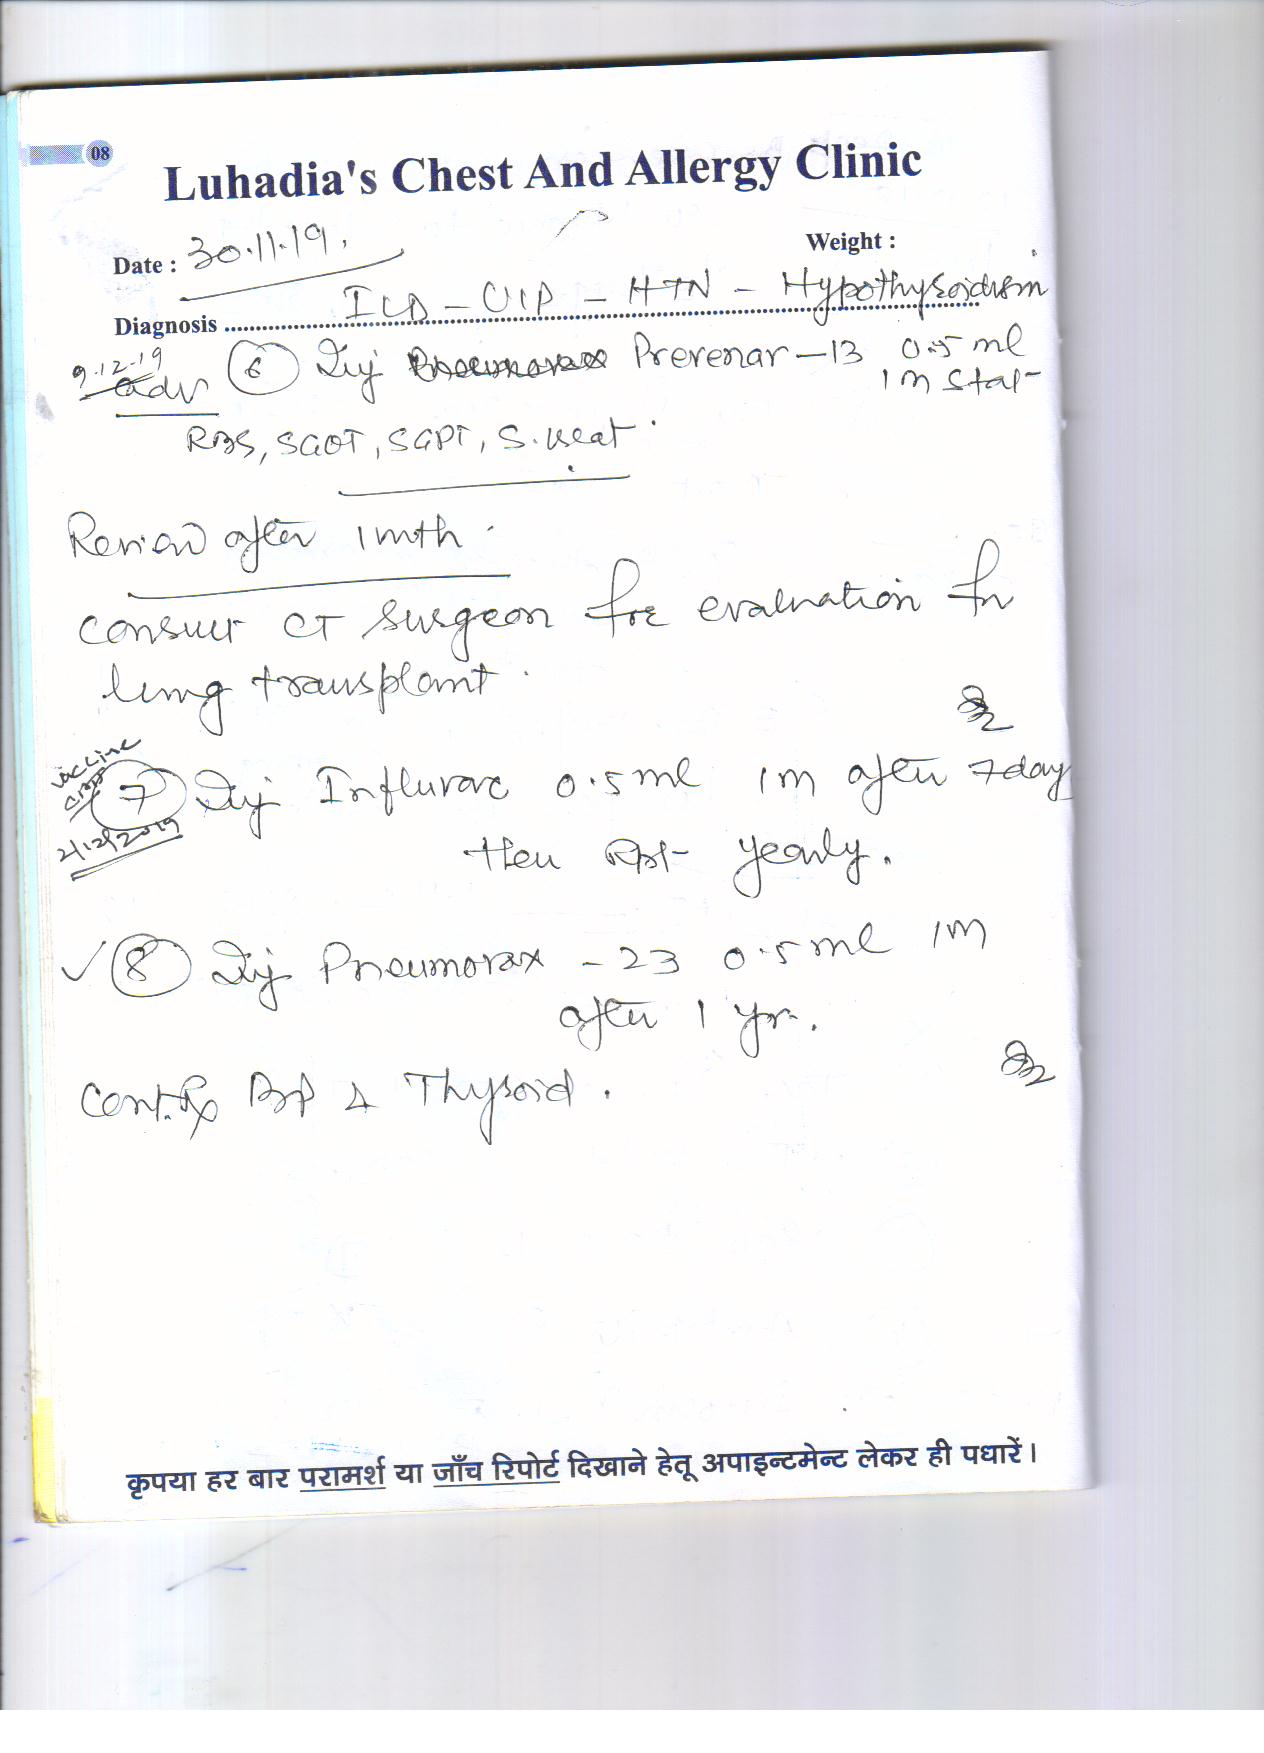 08
Luhadia's Chest And Allergy Clinic
Date : 30.11.19.
Weight :
Diagnosis ILD - UIP - HTN - Hypothyroidism
9.12.19
Adv (6) Inj Prevenar - 13 0.5 ml
IM Stat
RBS, SGOT, SGPT, S. Creat
Review after 1 mth.
Consult CT Surgeon for evaluation for
lung transplant.
vaccine
(7) Inj Influvac 0.5 ml IM after 7 day
2/12/2019
then Rpt yearly.
✓ (8) Inj Pneumovax - 23 0.5 ml IM
after 1 yr.
Cont. Rx BP & Thyroid.
कृपया हर बार परामर्श या जाँच रिपोर्ट दिखाने हेतू अपाइन्टमेन्ट लेकर ही पधारें।